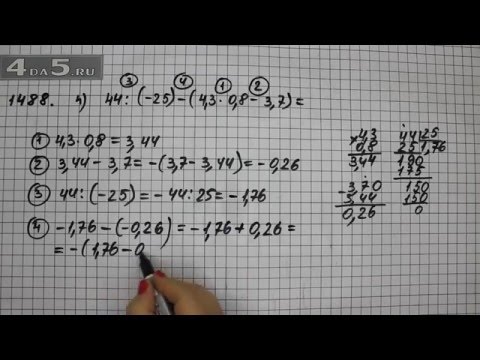 4DA5.RU
③ ④ ① ②
1488. з) 44:(-25)-(4,3·0,8-3,7)=
① 4,3·0,8=3,44
② 3,44-3,7=-(3,7-3,44)=-0,26
③ 44:(-25)=-44:25=-1,76
④ -1,76-(-0,26)=-1,76+0,26=
=-(1,76-0
×4,3
0,8
3,44
-3,70
3,44
0,26
44|25
25|1,76
190
175
150
150
0